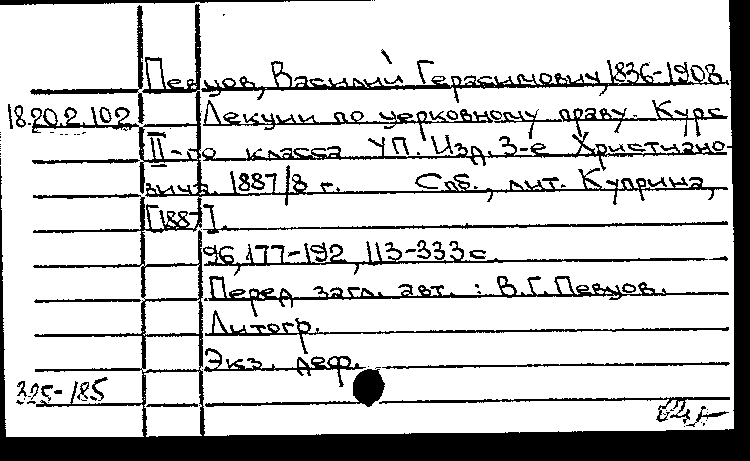 Певцов, Василий Герасимович, 1836-1908.
18.20.2.102 Лекции по церковному праву. Курс
II-го класса УП. Изд. 3-е Христиано-
вича. 1887/8 г. Спб., лит. Куприна,
[1887].
96, 177-192, 113-333 с.
Перед загл. авт.: В.Г. Певцов.
Литогр.
Экз. деф.
325-185